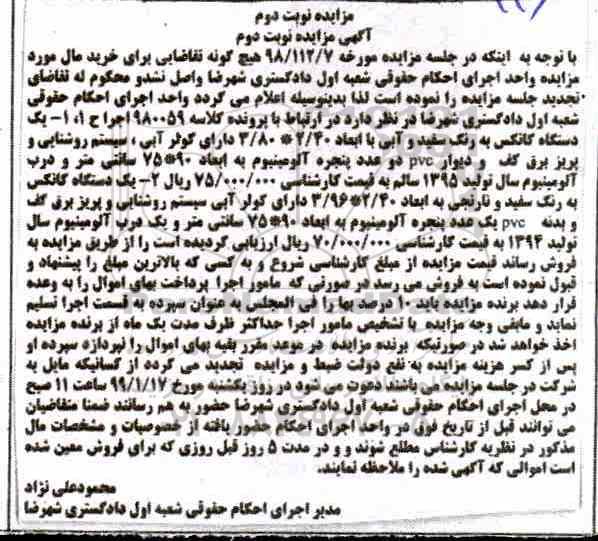 مزایده نوبت دوم
آگهی مزایده نوبت دوم
با توجه به اینکه در جلسه مزایده مورخه ۹۸/۱۱۲/۷ هیچ گونه تقاضایی برای خرید مال مورد
مزایده واحد اجرای احکام حقوقی شعبه اول دادگستری شهرضا واصل نشدو محکوم له تقاضای
تجدید جلسه مزایده را نموده است لذا بدینوسیله اعلام می گردد واحد اجرای احکام حقوقی
شعبه اول دادگستری شهرضا در نظر دارد در ارتباط با پرونده کلاسه ۹۸۰۰۵۹ اجرا ح ۱، ۱- یک
دستگاه کانکس به رنگ سفید و آبی با ابعاد ۲/۴۰*۳/۸۰ دارای کولر آبی ، سیستم روشنایی و
پریز برق کف و دیوار pvc دو عدد پنجره آلومینیوم به ابعاد ۹۰*۷۵ سانتی متر و درب
آلومینیوم سال تولید ۱۳۹۵ سالم به قیمت کارشناسی ۷۵/۰۰۰/۰۰۰ ریال ۲- یک دستگاه کانکس
به رنگ سفید و نارنجی به ابعاد ۲/۴۰*۳/۹۶ دارای کولر آبی سیستم روشنایی و پریز برق کف
و بدنه pvc یک عدد پنجره آلومینیوم به ابعاد ۹۰*۷۵ سانتی متر و یک درب آلومینیوم سال
تولید ۱۳۹۴ به قیمت کارشناسی ۷۰/۰۰۰/۰۰۰ ریال ارزیابی گردیده است را از طریق مزایده به
فروش رساند قیمت مزایده از مبلغ کارشناسی شروع و به کسی که بالاترین مبلغ را پیشنهاد و
قبول نموده است به فروش می رسد در صورتی که مامور اجرا پرداخت بهای اموال را به وعده
قرار دهد برنده مزایده باید ۱۰ درصد بها را فی المجلس به عنوان سپرده به قسمت اجرا تسلیم
نماید و مابقی وجه مزایده با تشخیص مامور اجرا حداکثر ظرف مدت یک ماه از برنده مزایده
اخذ خواهد شد در صورتیکه برنده مزایده در موعد مقرر بقیه بهای اموال را نپردازد سپرده او
پس از کسر هزینه مزایده به نفع دولت ضبط و مزایده تجدید می گردد از کسانیکه مایل به
شرکت در جلسه مزایده می باشند دعوت می شود در روز یکشنبه مورخ ۹۹/۱/۱۷ ساعت ۱۱ صبح
در محل اجرای احکام حقوقی شعبه اول دادگستری شهرضا حضور به هم رسانند ضمنا متقاضیان
می توانند قبل از تاریخ فوق در واحد اجرای احکام حضور یافته از خصوصیات و مشخصات مال
مذکور در نظریه کارشناس مطلع شوند و و در مدت ۵ روز قبل روزی که برای فروش معین شده
است اموالی که آگهی شده را ملاحظه نمایند.
محمودعلی نژاد
مدیر اجرای احکام حقوقی شعبه اول دادگستری شهرضا